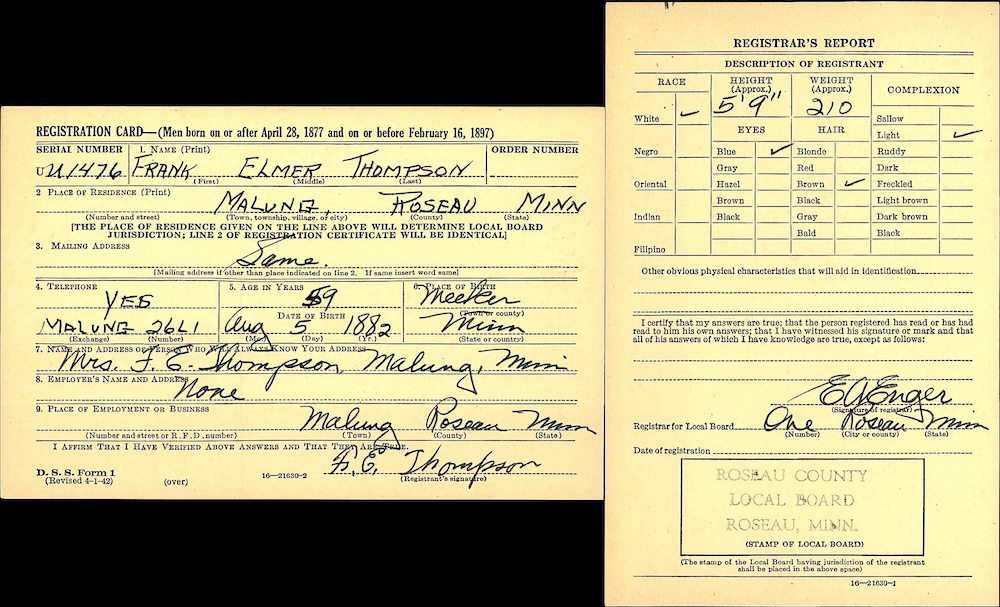 REGISTRATION CARD—(Men born on or after April 28, 1877 and on or before February 16, 1897)
SERIAL NUMBER 1. NAME (Print) ORDER NUMBER
U U1476 FRANK ELMER THOMPSON
(First) (Middle) (Last)
2 PLACE OF RESIDENCE (Print)
MALUNG, ROSEAU MINN
(Number and street) (Town, township, village, or city) (County) (State)
[THE PLACE OF RESIDENCE GIVEN ON THE LINE ABOVE WILL DETERMINE LOCAL BOARD
JURISDICTION; LINE 2 OF REGISTRATION CERTIFICATE WILL BE IDENTICAL]
3. MAILING ADDRESS
Same.
[Mailing address if other than place indicated on line 2. If same insert word same]
4. TELEPHONE 5. AGE IN YEARS 6. PLACE OF BIRTH
YES 59 Meeker
DATE OF BIRTH (Town or county)
MALUNG 26L1 Aug 5 1882 Minn
(Exchange) (Number) (Mo.) (Day) (Yr.) (State or country)
7. NAME AND ADDRESS OF PERSON WHO WILL ALWAYS KNOW YOUR ADDRESS
Mrs. F. E. Thompson, Malung, Minn
8. EMPLOYER'S NAME AND ADDRESS
None
9. PLACE OF EMPLOYMENT OR BUSINESS
Malung Roseau Minn
(Number and street or R.F.D. number) (Town) (County) (State)
I AFFIRM THAT I HAVE VERIFIED ABOVE ANSWERS AND THAT THEY ARE TRUE.
F. E. Thompson
D. S. S. Form 1
(Revised 4-1-42) (over) 16—21630-2 (Registrant's signature)
REGISTRAR'S REPORT
DESCRIPTION OF REGISTRANT
RACE HEIGHT (Approx.) WEIGHT (Approx.) COMPLEXION
5'9" 210
White ✓ Sallow
EYES HAIR Light ✓
Negro Blue ✓ Blonde Ruddy
Gray Red Dark
Oriental Hazel Brown ✓ Freckled
Brown Black Light brown
Indian Black Gray Dark brown
Bald Black
Filipino
Other obvious physical characteristics that will aid in identification
I certify that my answers are true; that the person registered has read or has had
read to him his own answers; that I have witnessed his signature or mark and that
all of his answers of which I have knowledge are true, except as follows:
E A Enger
(Signature of registrar)
Registrar for Local Board One Roseau Minn
(Number) (City or county) (State)
Date of registration
ROSEAU COUNTY
LOCAL BOARD
ROSEAU, MINN.
(STAMP OF LOCAL BOARD)
(The stamp of the Local Board having jurisdiction of the registrant
shall be placed in the above space)
16—21630-1